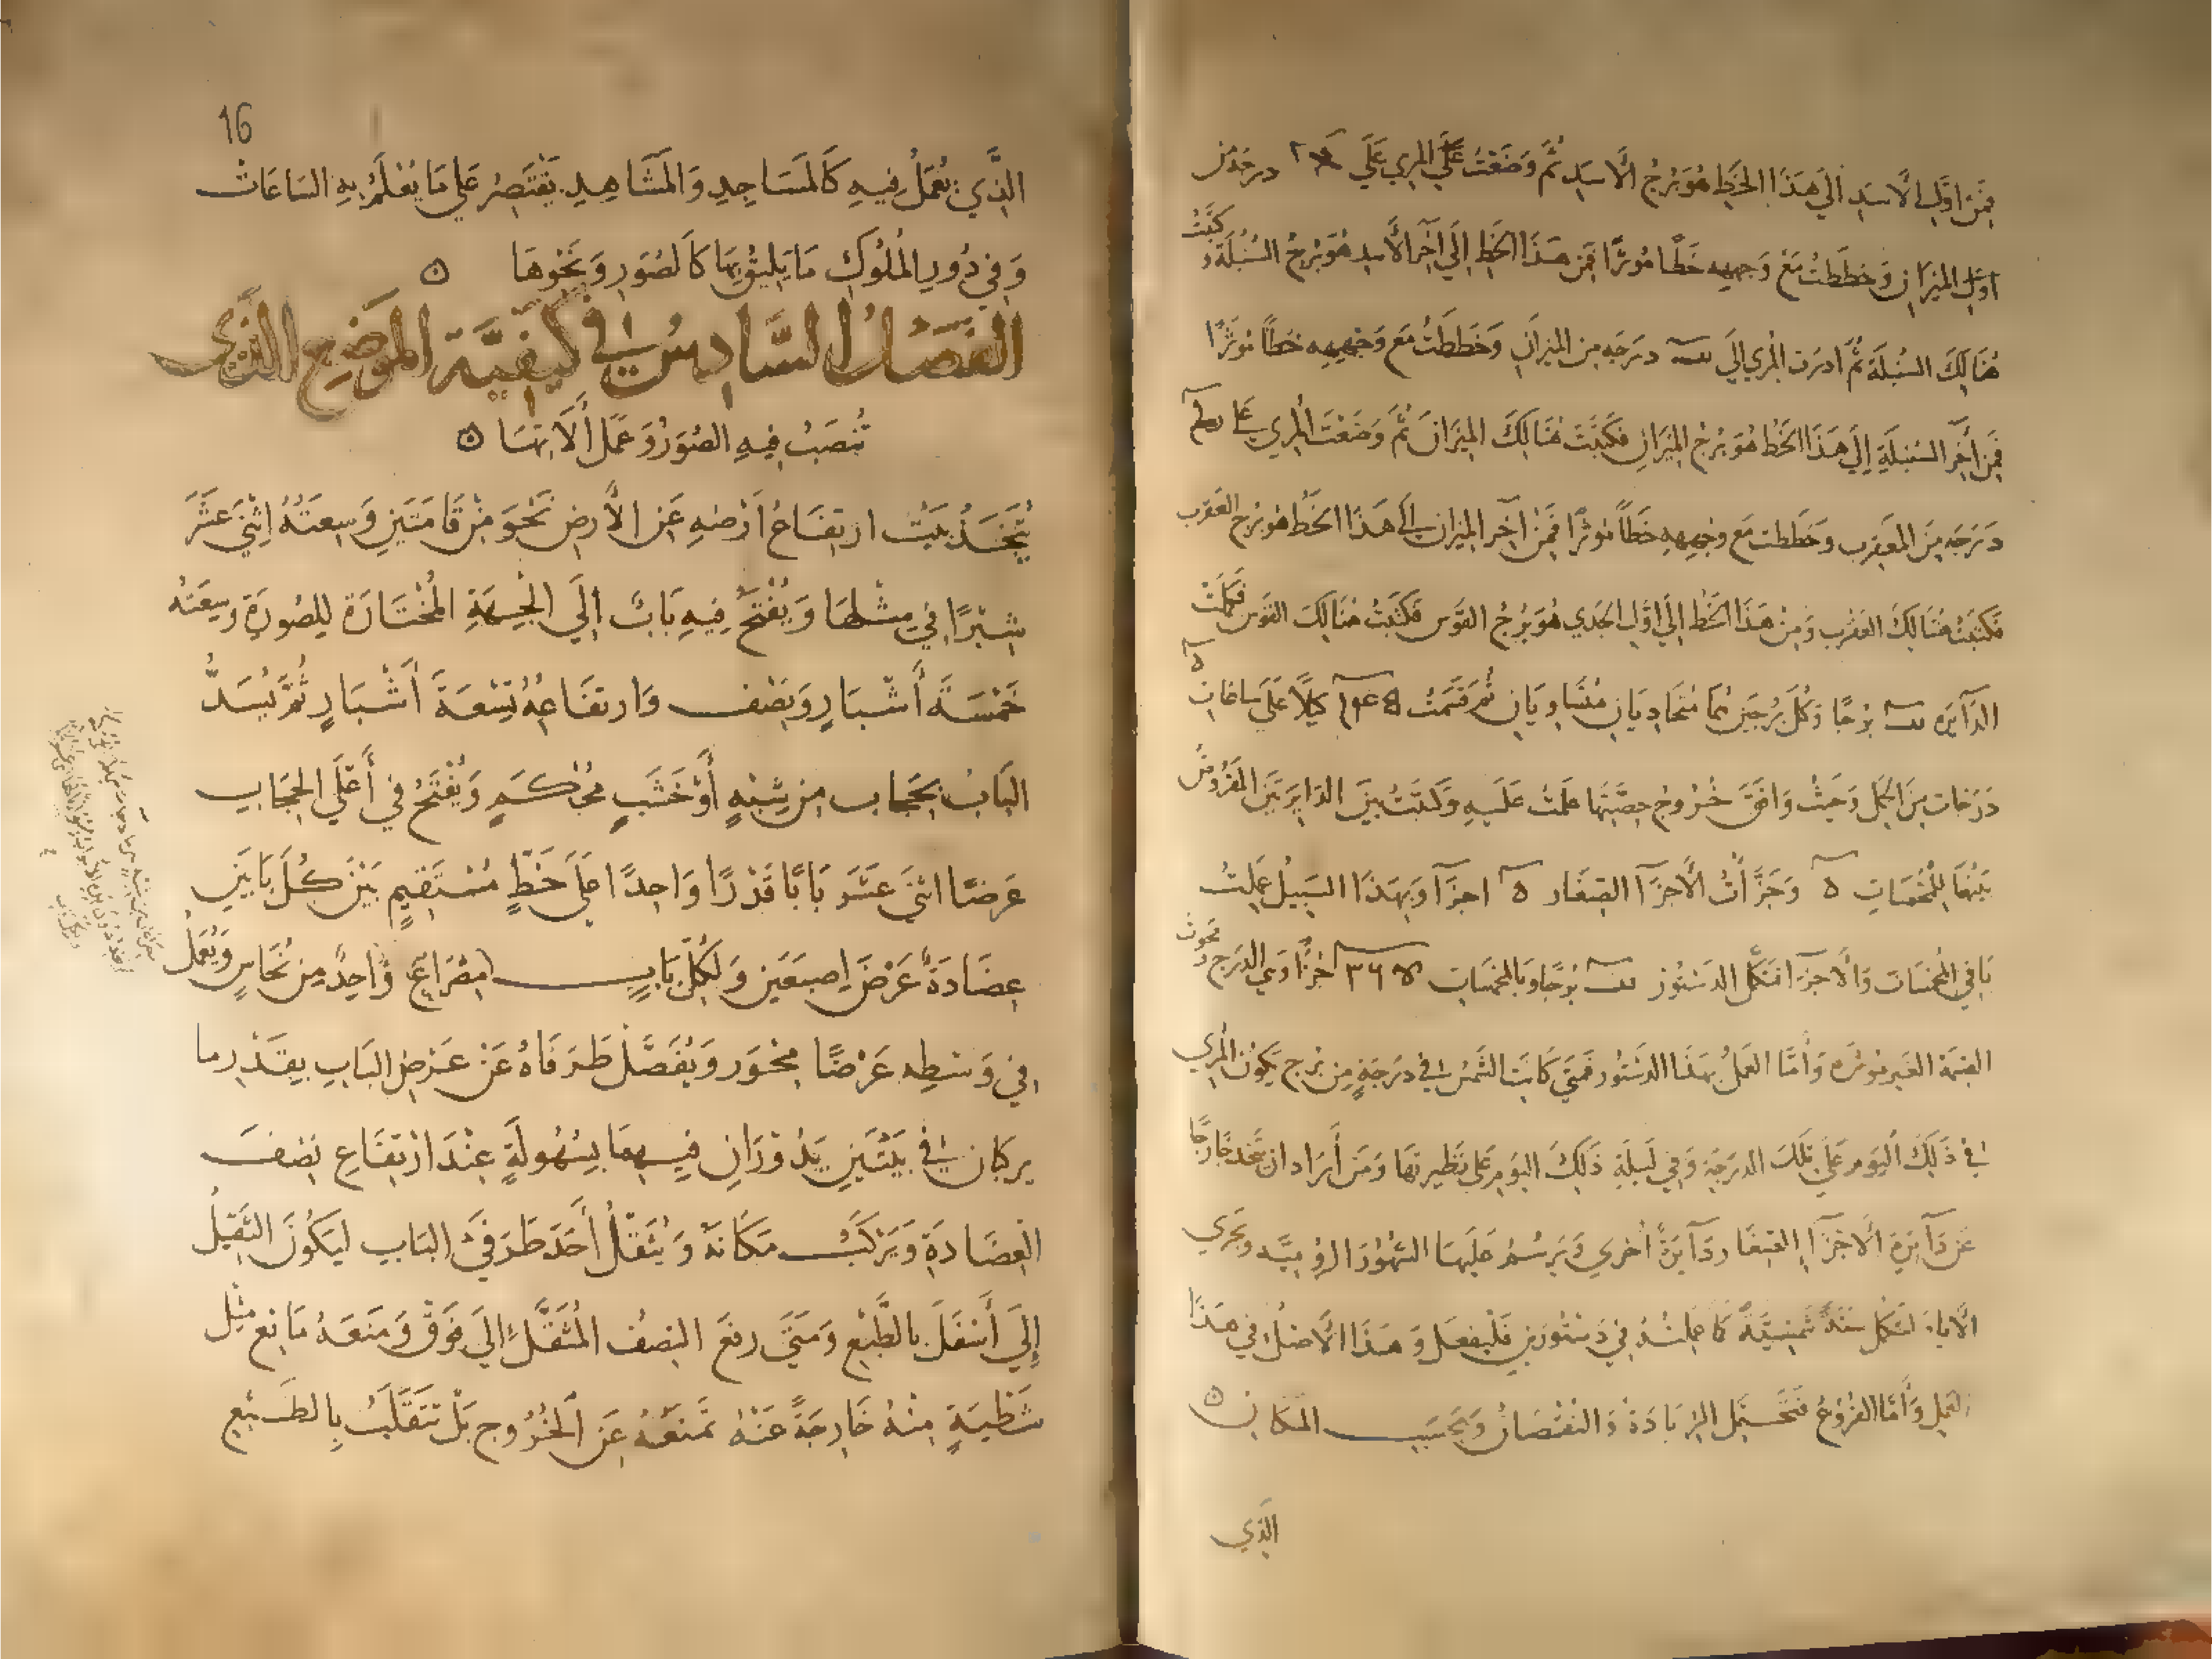 فمن اول الاسد الي هذا الخط هو برج الاسد ثم وضعت علي المري علي درجة من
اول الميزان وخططت مع وجهيه خطا موثرا فمن هذا الخط الي اخر الاسد هو برج السنبلة وكتبت
هنالك السنبلة ثم ادرت المري الي درجة من الميزان وخططت مع وجهيه خطا موثرا
فمن اخر السنبلة الي هذا الخط هو برج الميزان فكتبت هنالك الميزان ثم وضعت المري علي
درجة من العقرب وخططت مع وجهيه خطا موثرا فمن اخر الميزان الي هذا الخط هو برج العقرب
فكتبت هنالك العقرب ومن هذا الخط الي اول الجدي هو برج القوس فكتبت هنالك القوس فكملت
الدايرة برجا وكل برجين متحاديان متساويان ثم قسمت كيلا علي ساعات ٥
درجات من الحمل وحيث وافق خروج حصتها علمت عليه وكتبت بين الدايرتين المفروض
بينها للخمسات ٥ وجزأت الاجزآ الصغار ٥ اجزآ وبهذا السبيل عملت
باقي الخمسات والاجزآ فتكمل الدستور برجا وبالخمسات ٣٦٠ جزءا وهي الدرج
القسمة الغير موثره وأما العمل بهذا الدستور فمتي كانت الشمس في درجة من برج يكون المري
في ذلك اليوم علي تلك الدرجة وفي ليلة ذلك اليوم علي نظيرتها ومن أراد ان يتخذ خارجا
عن دآيرة الاجزآ الصغار دآيرة أخري ويرسم عليها الشهور الروميّه ويجري
الايام لتكمل سنة شمسية كما عملته في دستورين فليفعل وهذا الاصل في هذا
العمل وأما الفروع فتحتمل الزيادة والنقصان وبحسب المكان ٥
الذي
16
الذي يعمل فيه كالمساجد والمشاهد يقتصر علي ما يعلم به الساعات
وفي دور الملوك ما يليق بها كالصور ونحوها ٥
الفصل السادس في كيفية الموضع الذي
تنصب فيه الصور وعمل ألاتها ٥
يتخذ بيت ارتفاع أرضه عن الأرض نحو من قامتين وسعته اثني عشر
شبرًا في مثلها ويفتح فيه باب إلي الجهة المختارة للصورة وسعته
خمسة أشبار ونصف وارتفاعه تسعة أشبار ثم يسد
الباب بحجاب من شبه أو خشب محكم ويفتح في أعلي الحجاب
عرضا اثني عشر بابا قدرا واحدا علي خط مستقيم بين كل بابين
عضادة عرض اصبعين ولكل باب مصراع واحد من نحاس ويعمل
في وسطه عرضا محور ويفصل طرفاه عن عرض الباب بقدر ما
يركبان في بيتين يدوران فيهما بسهولة عند ارتفاع نصف
العضادة ويركب مكانه ويثقل أحد طرفي الباب ليكون الثقيل
إلي أسفل بالطبع ومتي رفع النصف المثقل إلي فوق ومنعه مانع مثل
شظية منه خارجة عنه تمنعه عن الخروج بل تتقلب بالطبع